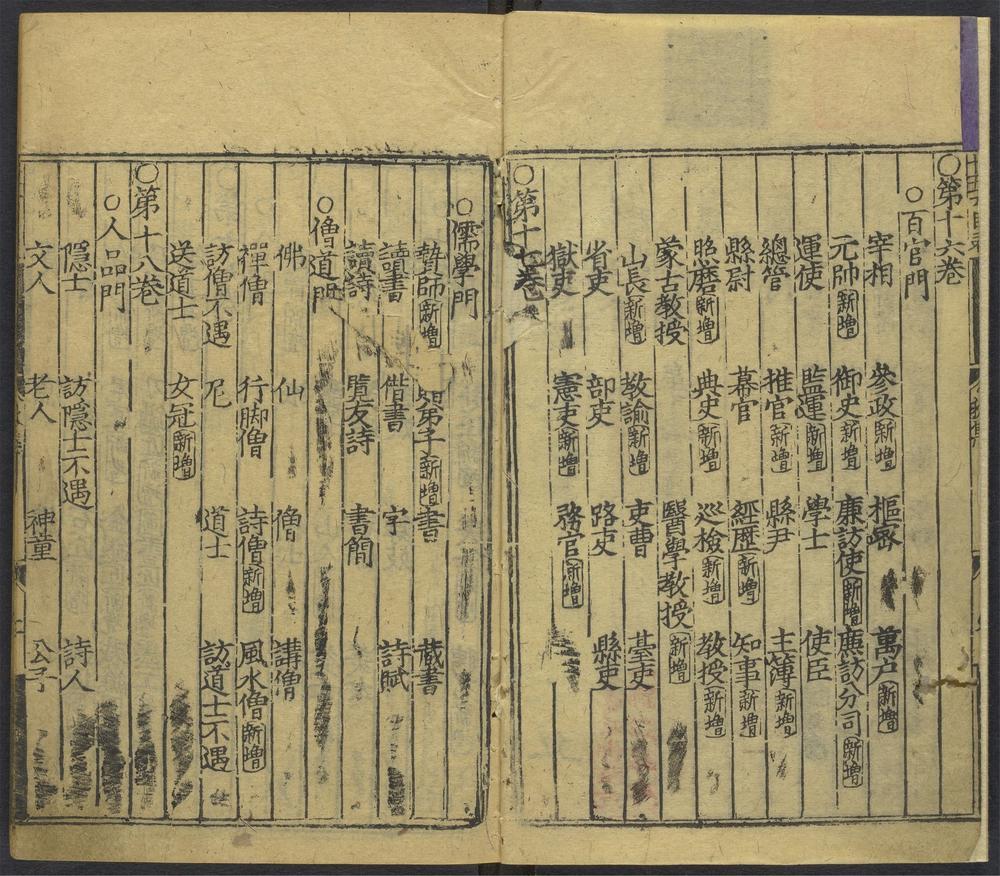 ○第十六卷
○百官門
宰相 參政新增 樞密 萬户新增
元帥新增 御史新增 廉訪使新增 廉訪分司新增
運使 監運新增 學士 使臣
總管 推官新增 縣尹 主簿新增
縣尉 幕官 經歷新增 知事新增
照磨新增 典史新增 巡檢新增 教授新增
蒙古教授 醫學教授新增
山長新增 教諭新增 吏曹 臺吏
省吏 部吏 路吏 縣吏
獄吏 憲吏新增 務官新增
○第十七卷
○儒學門
贄師新增 弟子新增 書 藏書
讀書 借書 字 詩賦
讀詩 覽友詩 書簡
○僧道門
佛 仙 僧 講僧
禪僧 行脚僧 詩僧新增 風水僧新增
訪僧不遇 尼 道士 訪道士不遇
送道士 女冠新增
○第十八卷
○人品門
隱士 訪隱士不遇 詩人
文人 老人 神童 公子